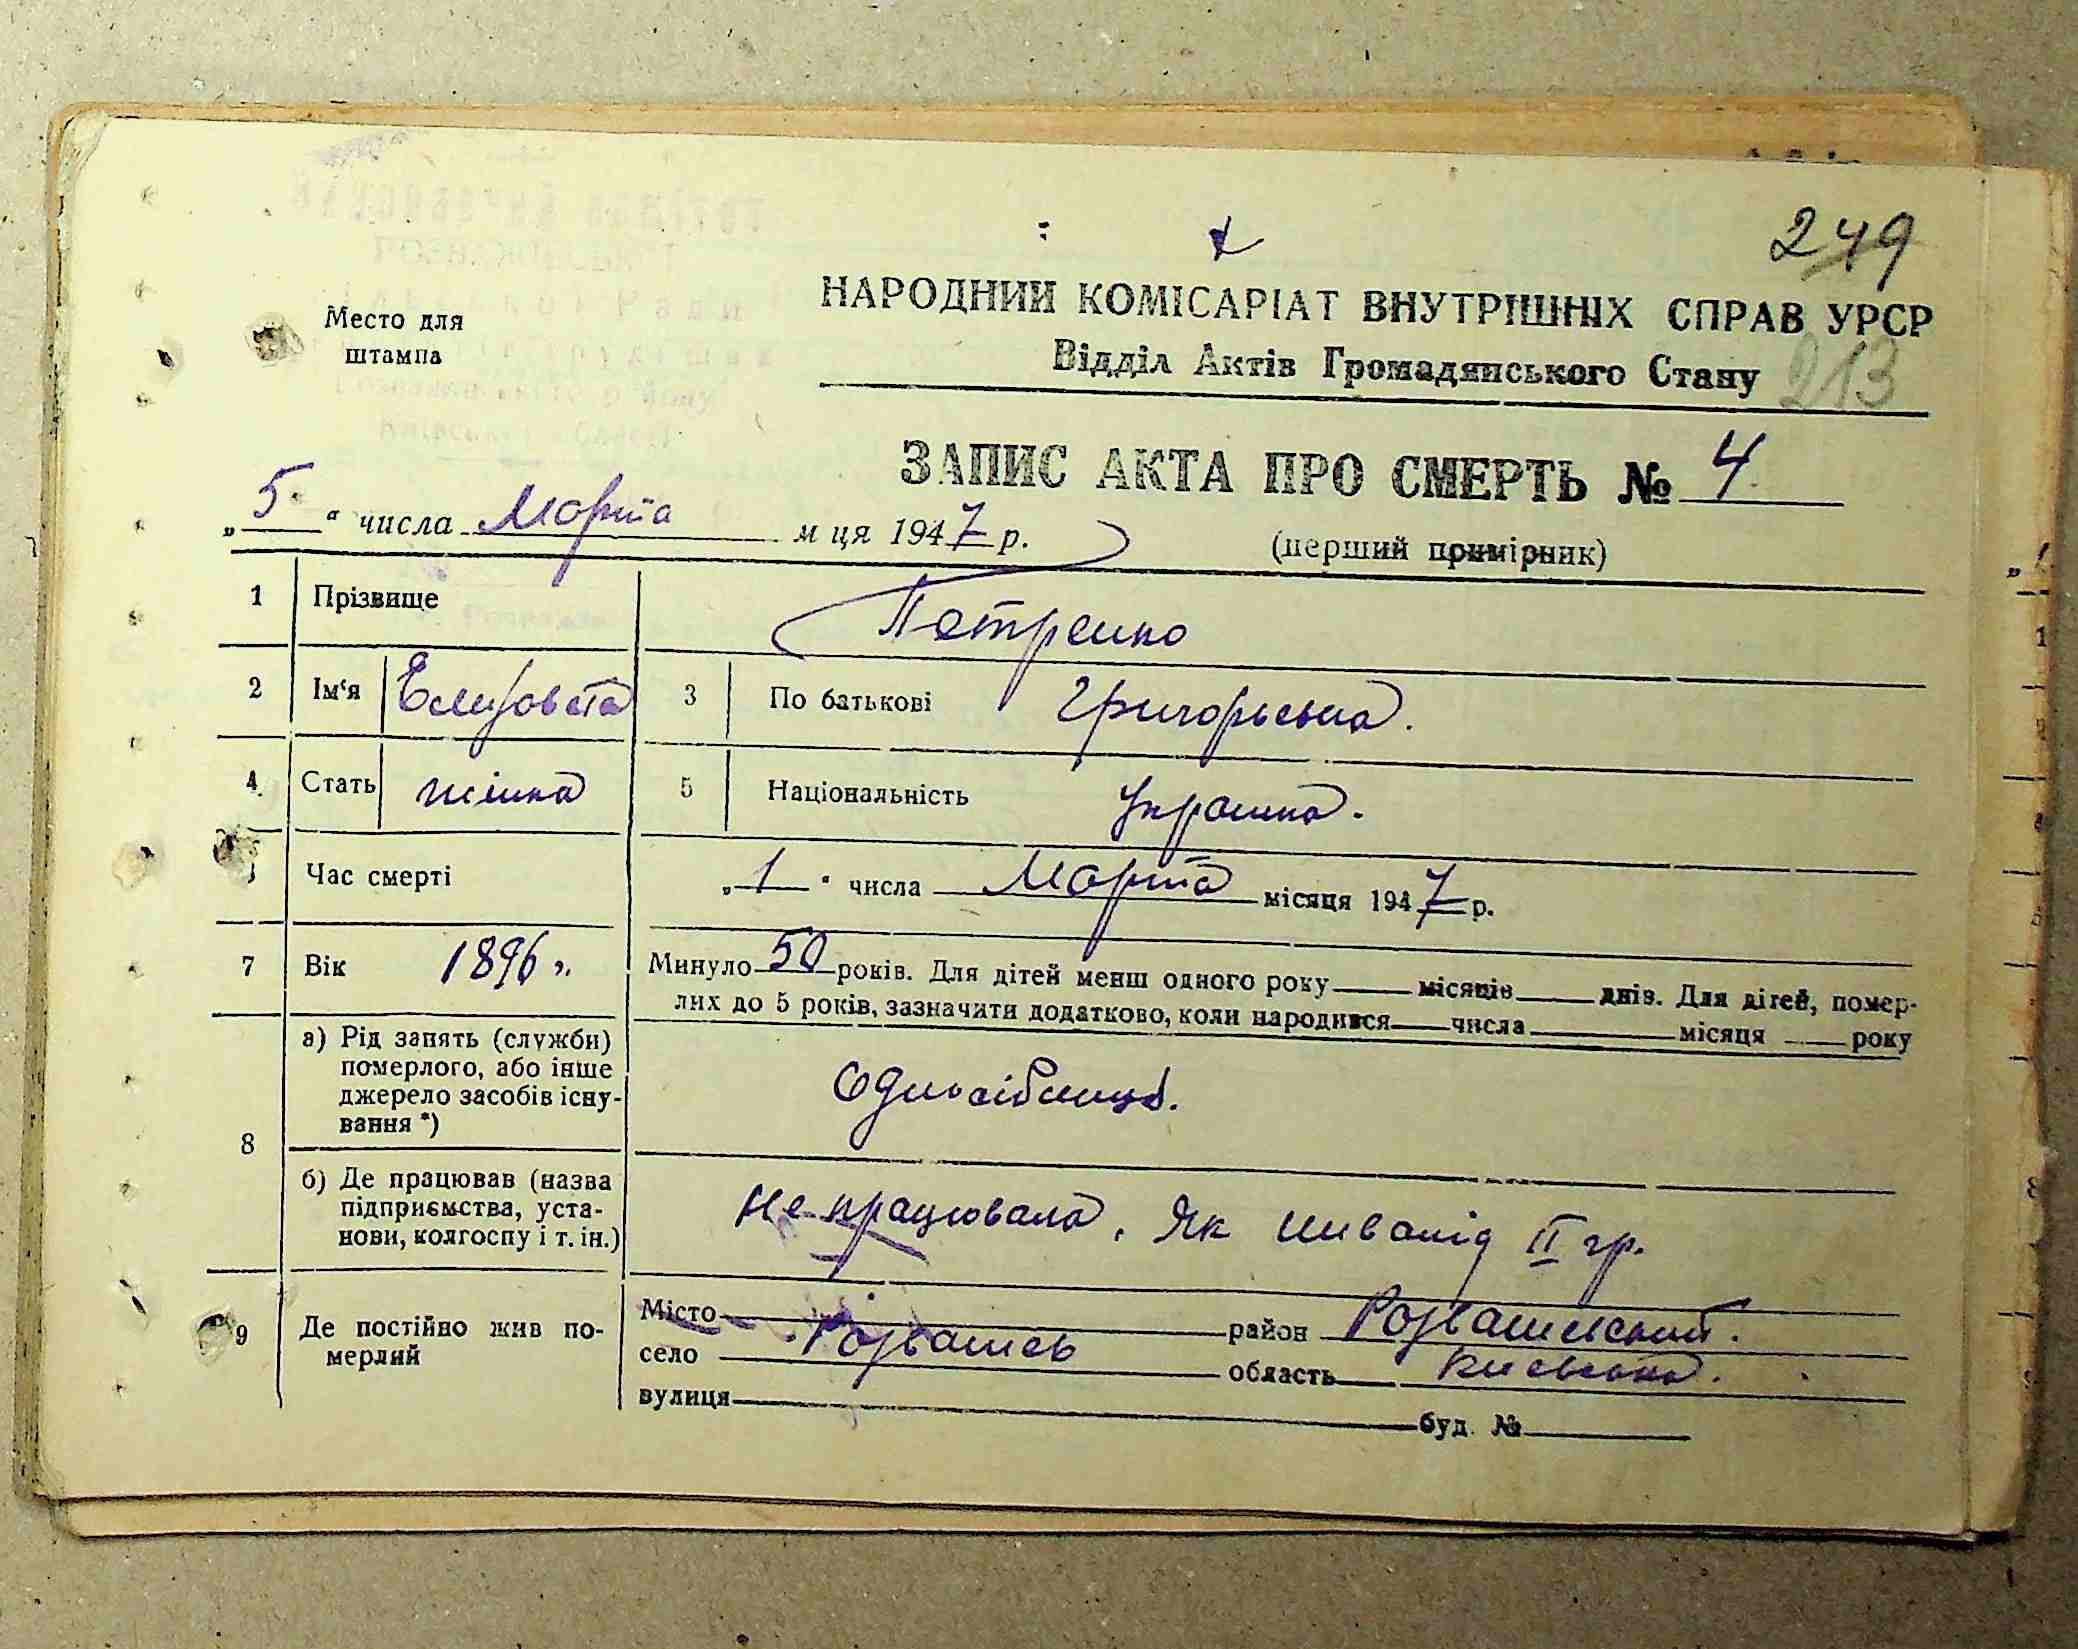 249
НАРОДНИЙ КОМІСАРІАТ ВНУТРІШНІХ СПРАВ УРСР
Место для
штампа
Відділ Актів Громадянського Стану
213
ЗАПИС АКТА ПРО СМЕРТЬ № 4
„5“ числа Марта м ця 1947 р.
(перший примірник)
1 Прізвище Петренко
2 Ім'я Єлизовета 3 По батькові Григорьевна.
4 Стать жінка 5 Національність Украинка.
Час смерті „1“ числа Марта місяця 1947 р.
7 Вік 1896 г. Минуло 50 років. Для дітей менш одного року місяців днів. Для дітей, помер-
лих до 5 років, зазначити додатково, коли народився числа місяця року
8 а) Рід занять (служби)
померлого, або інше
джерело засобів існу-
вання *)
Одноосібниця.
б) Де працював (назва
підприємства, уста-
нови, колгоспу і т. ін.)
Не працювала, як инвалід II гр.
9 Де постійно жив по-
мерлий
Місто район Розважевский.
село Розважев область Киевська.
вулиця буд. №